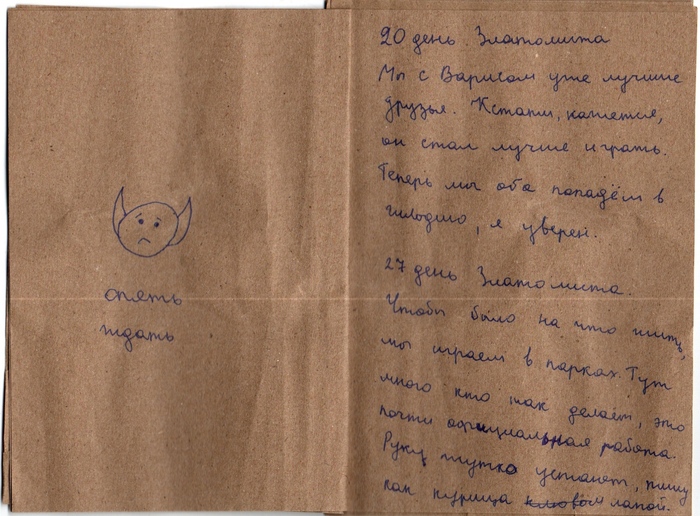 опять
ждать
20 день Златолиста
Мы с Варисом уже лучшие
друзья. Кстати, кажется,
он стал лучше играть.
Теперь мы оба попадём в
гильдию, я уверен.
27 день Златолиста.
Чтобы было на что жить,
мы играем в парках. Тут
много кто так делает, это
почти официальная работа.
Руки жутко устают, пишу
как курица клювом лапой.